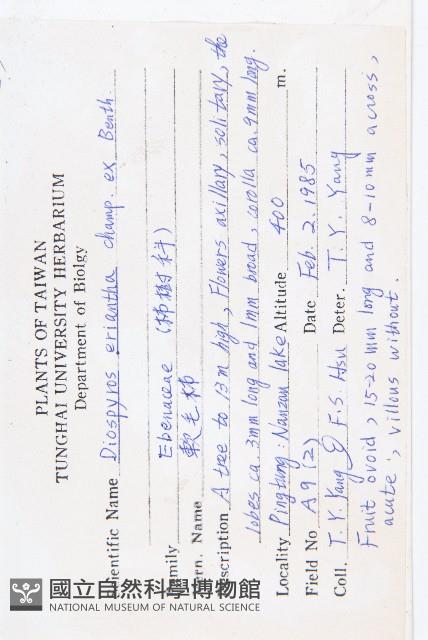 PLANTS OF TAIWAN
TUNGHAI UNIVERSITY HERBARIUM
Department of Biolgy
entific Name Diospyros eriantha champ. ex Benth.
mily Ebenaceae (柿樹科)
rn. Name 軟毛柿
scription A tree to 13m high, Flowers axillary, solitary, the
lobes ca. 3mm long and 1mm broad, corolla ca. 9mm long.
Locality Pingtung: Nanzan lake Altitude 400 m.
Field No A9(2) Date Feb. 2. 1985
Coll. T. Y. Yang F. S. Hsu Deter. T. Y. Yang
Fruit ovoid, 15-20 mm long and 8-10 mm across,
acute, villous without.
國立自然科學博物館
NATIONAL MUSEUM OF NATURAL SCIENCE